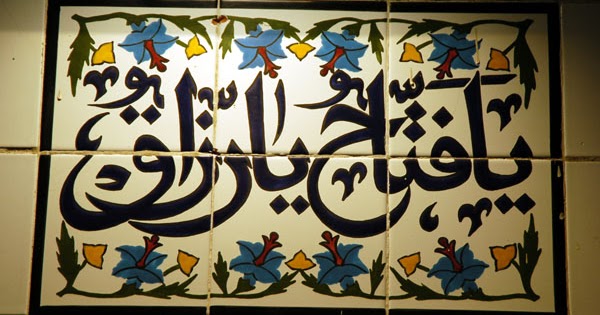 يا فتّاح يا رزّاق